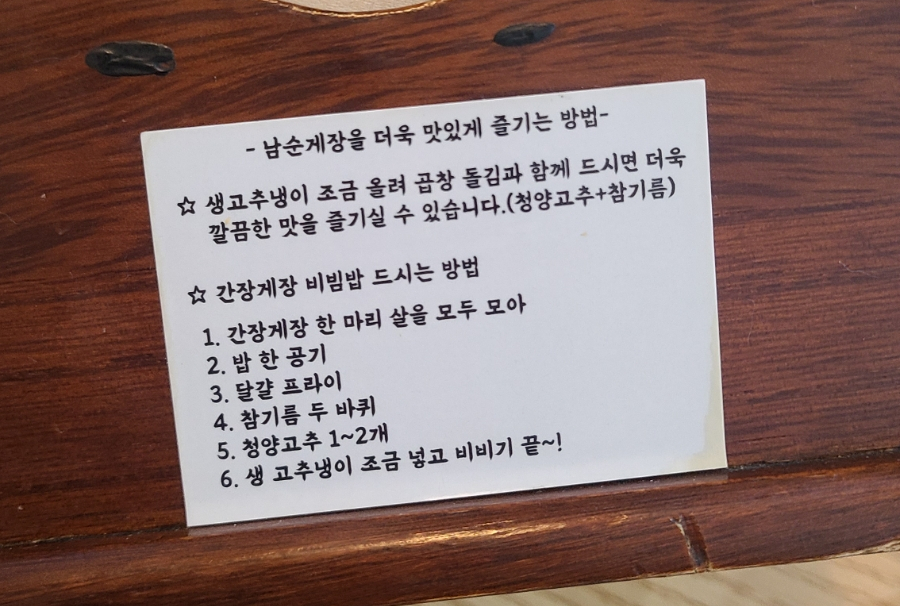 - 남순게장을 더욱 맛있게 즐기는 방법-
☆ 생고추냉이 조금 올려 곱창 돌김과 함께 드시면 더욱
깔끔한 맛을 즐기실 수 있습니다.(청양고추+참기름)
☆ 간장게장 비빔밥 드시는 방법
1. 간장게장 한 마리 살을 모두 모아
2. 밥 한 공기
3. 달걀 프라이
4. 참기름 두 바퀴
5. 청양고추 1~2개
6. 생 고추냉이 조금 넣고 비비기 끝~!